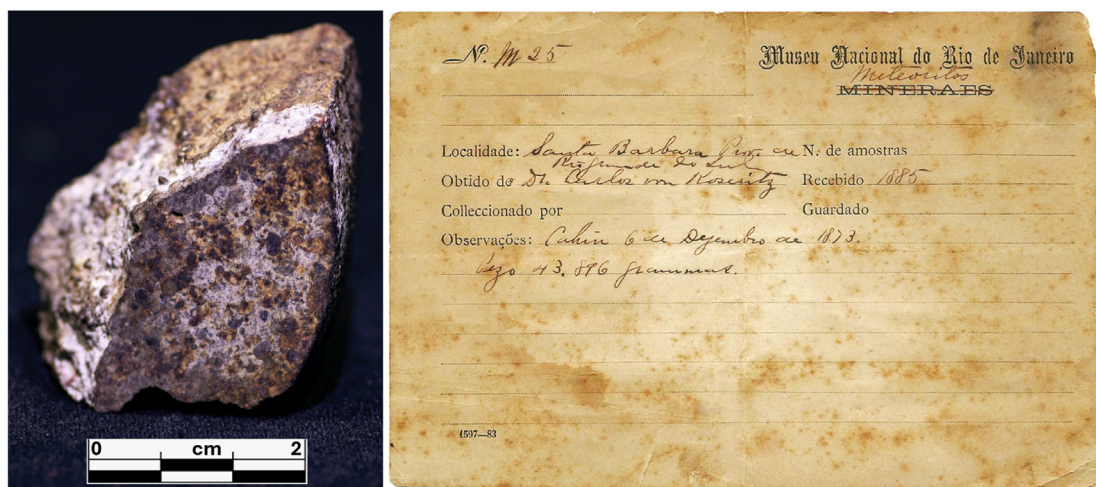 0 cm 2
N. M 25
Museu Nacional do Rio de Janeiro
Meteoritos
MINERAES
Localidade: Santa Barbara Prov. de
Rio grande do Sul
N. de amostras
Obtido de Dr. Carlos von Koseritz
Recebido 1885
Colleccionado por
Guardado
Observações: Cahiu 6 de Dezembro de 1873.
Pezo 43.896 grammas.
1597—83